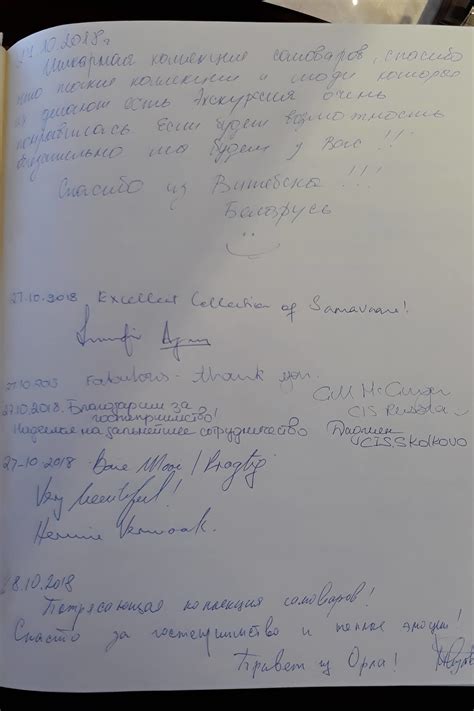 27.10.2018г
Шикарная коллекция самоваров, спасибо
что такие коллекции и люди которые
их делают есть Экскурсия очень
понравилась Если будет возможность
обязательно мы будем у Вас !!!
Спасибо из Витебска !!!
Беларусь
27.10.2018 Excellent Collection of Samavaars!
27.10.2018 Fabulous - thank you.
CIS Russia
27.10.2018. Благодарим за
гостеприимство!
Надеемся на дальнейшее сотрудничество
CIS, Skolkovo
27-10.2018 Baie Mooi / Pragtig
Very beautiful!
28.10.2018
Потрясающая коллекция самоваров!
Спасибо за гостеприимство и теплые эмоции!
Привет из Орла!